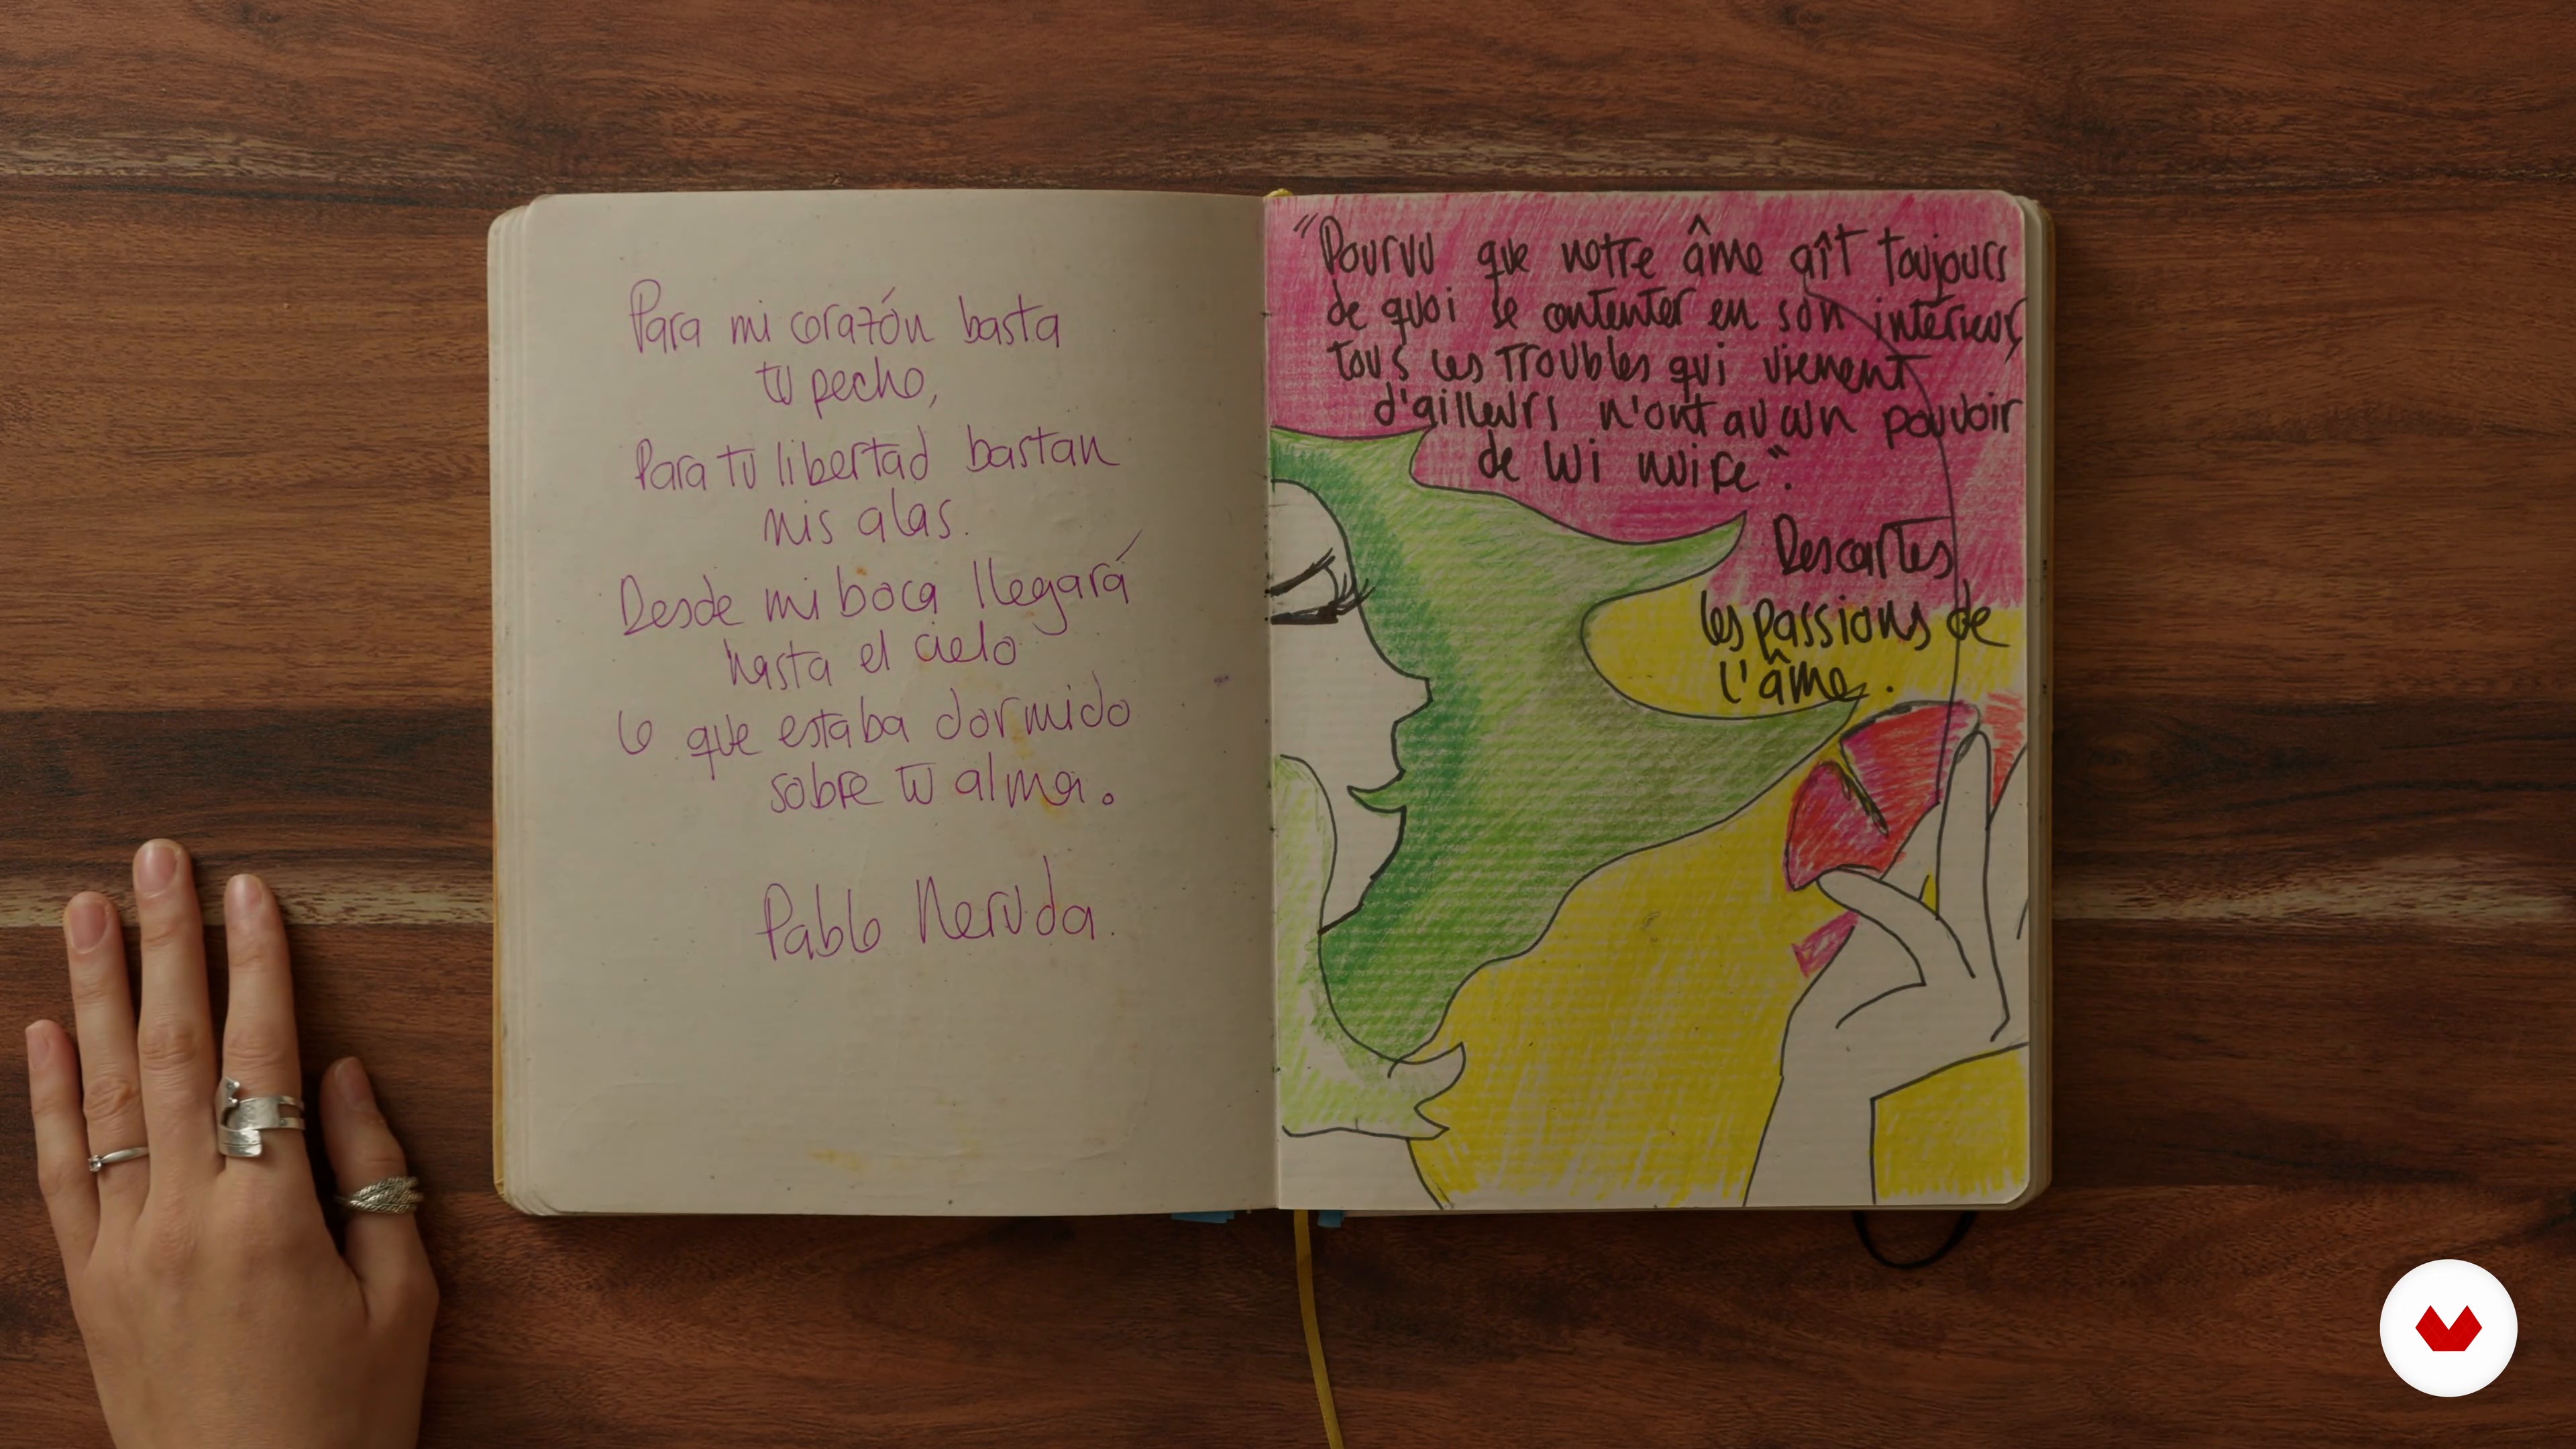 Para mi corazón basta
tu pecho,
Para tu libertad bastan
mis alas.
Desde mi boca llegará
hasta el cielo
lo que estaba dormido
sobre tu alma.
Pablo Neruda.
"Pourvu que notre âme aît toujours
de quoi se contenter en son intérieur,
tous ces troubles qui viennent
d'ailleurs n'ont aucun pouvoir
de lui nuire".
Descartes
les passions de
l'âme.